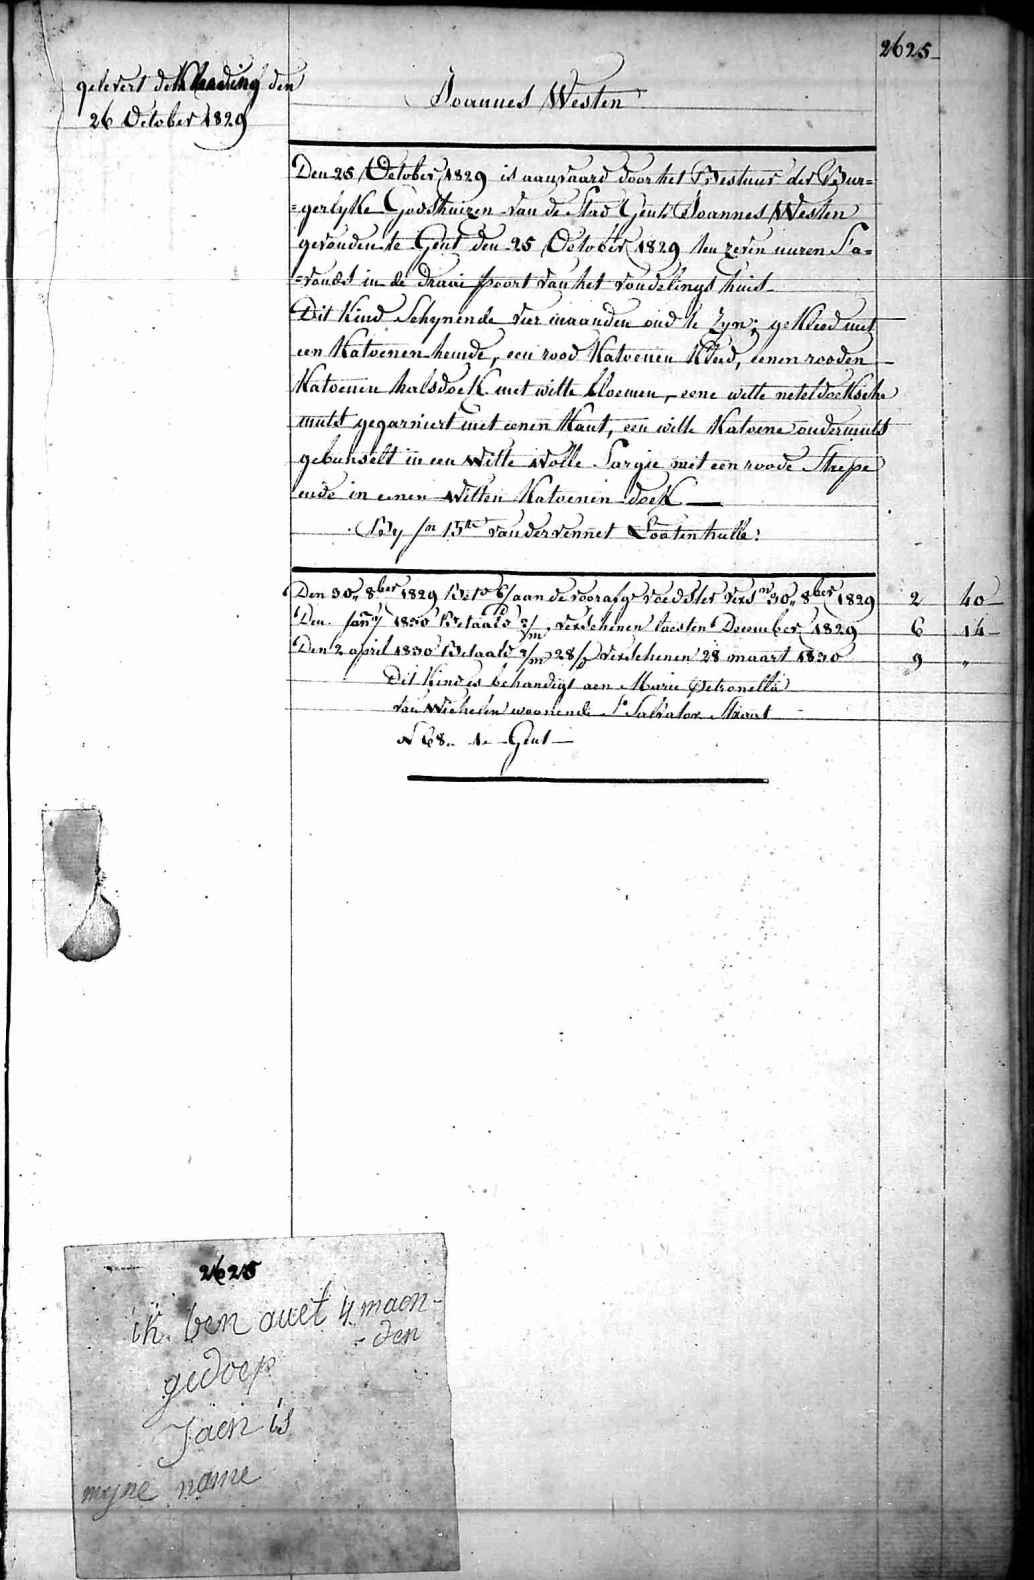 2625
gelevert de Kleeding den
26 October 1829
Joannes Westen
Den 25 October 1829 is aanvaard door het Bestuur der Bur=
=gerlyke Godshuizen van de Stad Gent Joannes Westen
gevonden te Gent den 25 October 1829 ten zeven uuren S'a=
=vonds in de draai poort van het vondelings huis
Dit Kind Schynende vier maanden oud te Zyn; gekleed met
een Katoenen hemde, een rood Katoenen Kleed, eenen rooden
Katoenen halsdoek met witte bloemen, eene witte neteldoeksche
muts gegarniert met eenen Kant, een witte Katoene ondermuts
gebunselt in een Witte Wolle Sargie met een roode Strepe
ende in eenen Witten Katoenen doek
By Jn Bte van der vennet Lootenhulle
Den 30 8ber 1829 aan de voorzege voedster 30 8ber 1829 2 40
Den Janry 1830 Betaald 3/m verschenen laesten December 1829 6 14
Den 2 april 1830 Betaald 3/m 28/ verschenen 28 maart 1830 9 "
Dit Kind is behandigt aen Marie Petronella
van Wichelen woonende St Salvator Straat
N 68 te Gent
2625
ik ben auet 4 maon-
-den
gedoep
Jaen is
myne name